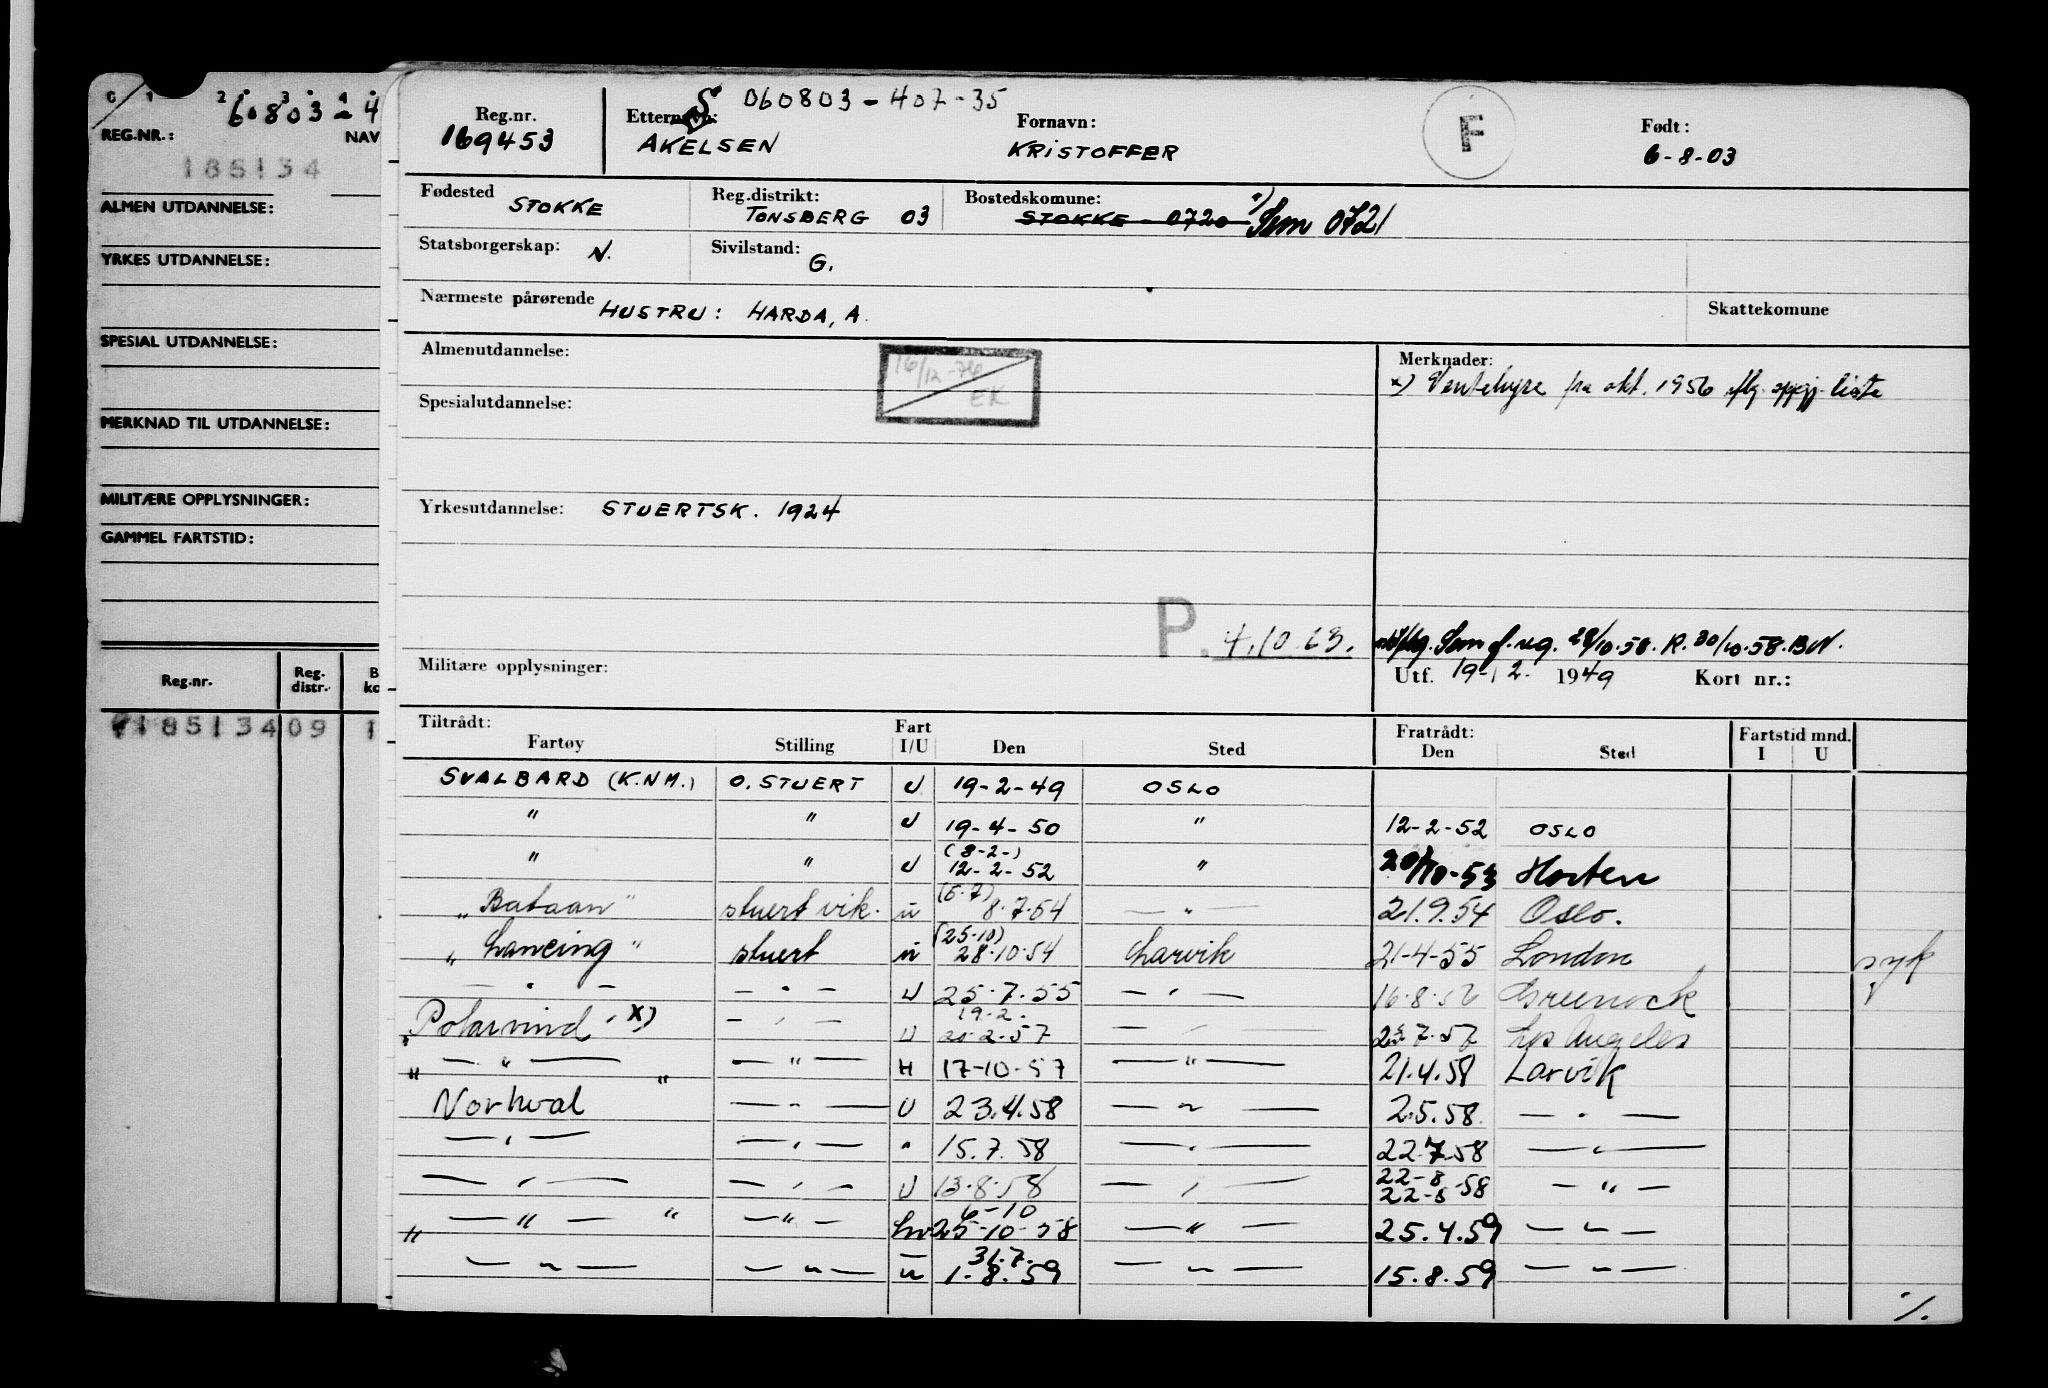 0 1 2 3 4
60803-4
REG.NR.: NAV
185134
ALMEN UTDANNELSE:
YRKES UTDANNELSE:
SPESIAL UTDANNELSE:
MERKNAD TIL UTDANNELSE:
MILITÆRE OPPLYSNINGER:
GAMMEL FARTSTID:
Reg.nr. Reg. distr. B ko
185134 09 1
S 060803-407-35
Reg.nr. Etternavn: Fornavn: F Født:
169453 AKELSEN KRISTOFFER 6-8-03
Fødested STOKKE Reg.distrikt: TØNSBERG 03 Bostedskomune: STOKKE - 0720 x) Sem 0721
Statsborgerskap: N. Sivilstand: G.
Nærmeste pårørende HUSTRU: HARDA, A. Skattekomune
Almenutdannelse: 16/12-76 EK Merknader:
x) Ventehyre fra okt. 1956 iflg. oppgj. liste
Spesialutdannelse:
Yrkesutdannelse: STUERTSK. 1924
P. 4.10.63. Sem f.reg. 28/10.58. R. 30/10.58. BN.
Militære opplysninger: Utf. 19-12. 1949 Kort nr.:
Tiltrådt: Fart Fratrådt: Fartstid mnd.
Fartøy Stilling I/U Den Sted Den Sted I U
SVALBARD (K.N.M.) O. STUERT U 19-2-49 OSLO
" " U 19-4-50 " 12-2-52 OSLO
(8-2-)
" " U 12-2-52 " 20/10-53 Horten
(5.7)
"Bataan" stuert vik. u 8.7.54 — " — 21.9.54 Oslo.
(25.10)
"Lancing" stuert u 28.10.54 Larvik 21-4-55 London syk
— " — — " — U 25.7.55 — " — 16.8.56 Greenock
19.2.
"Polarvind" x) — " — U 20.2.57 — " — 7.57 Los Angeles
" — " — " — " — H 17-10-57 — " — 21.4.58 Larvik
Norhval — " — U 23.4.58 — " — 2.5.58. — " —
— " — — " — " 15.7.58 — " — 22.7.58 — " —
— " — — " — U 13.8.58 — " — 22-8 22-8-58 — " —
6-10
" — " — " — " — hv 25-10-58 — " — 25.4.59 — " —
31.7.
— " — — " — u 1-8.59 — " — 15.8.59 — " —
·/.